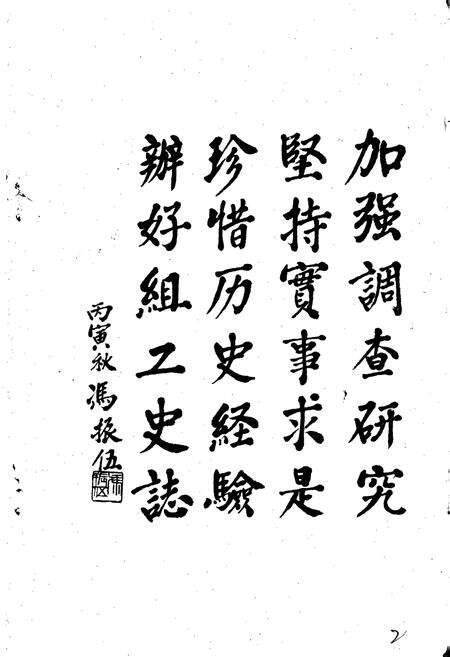 加强調查研究
堅持實事求是
珍惜历史経驗
辦好組工史誌
丙寅秋 馮振伍
2